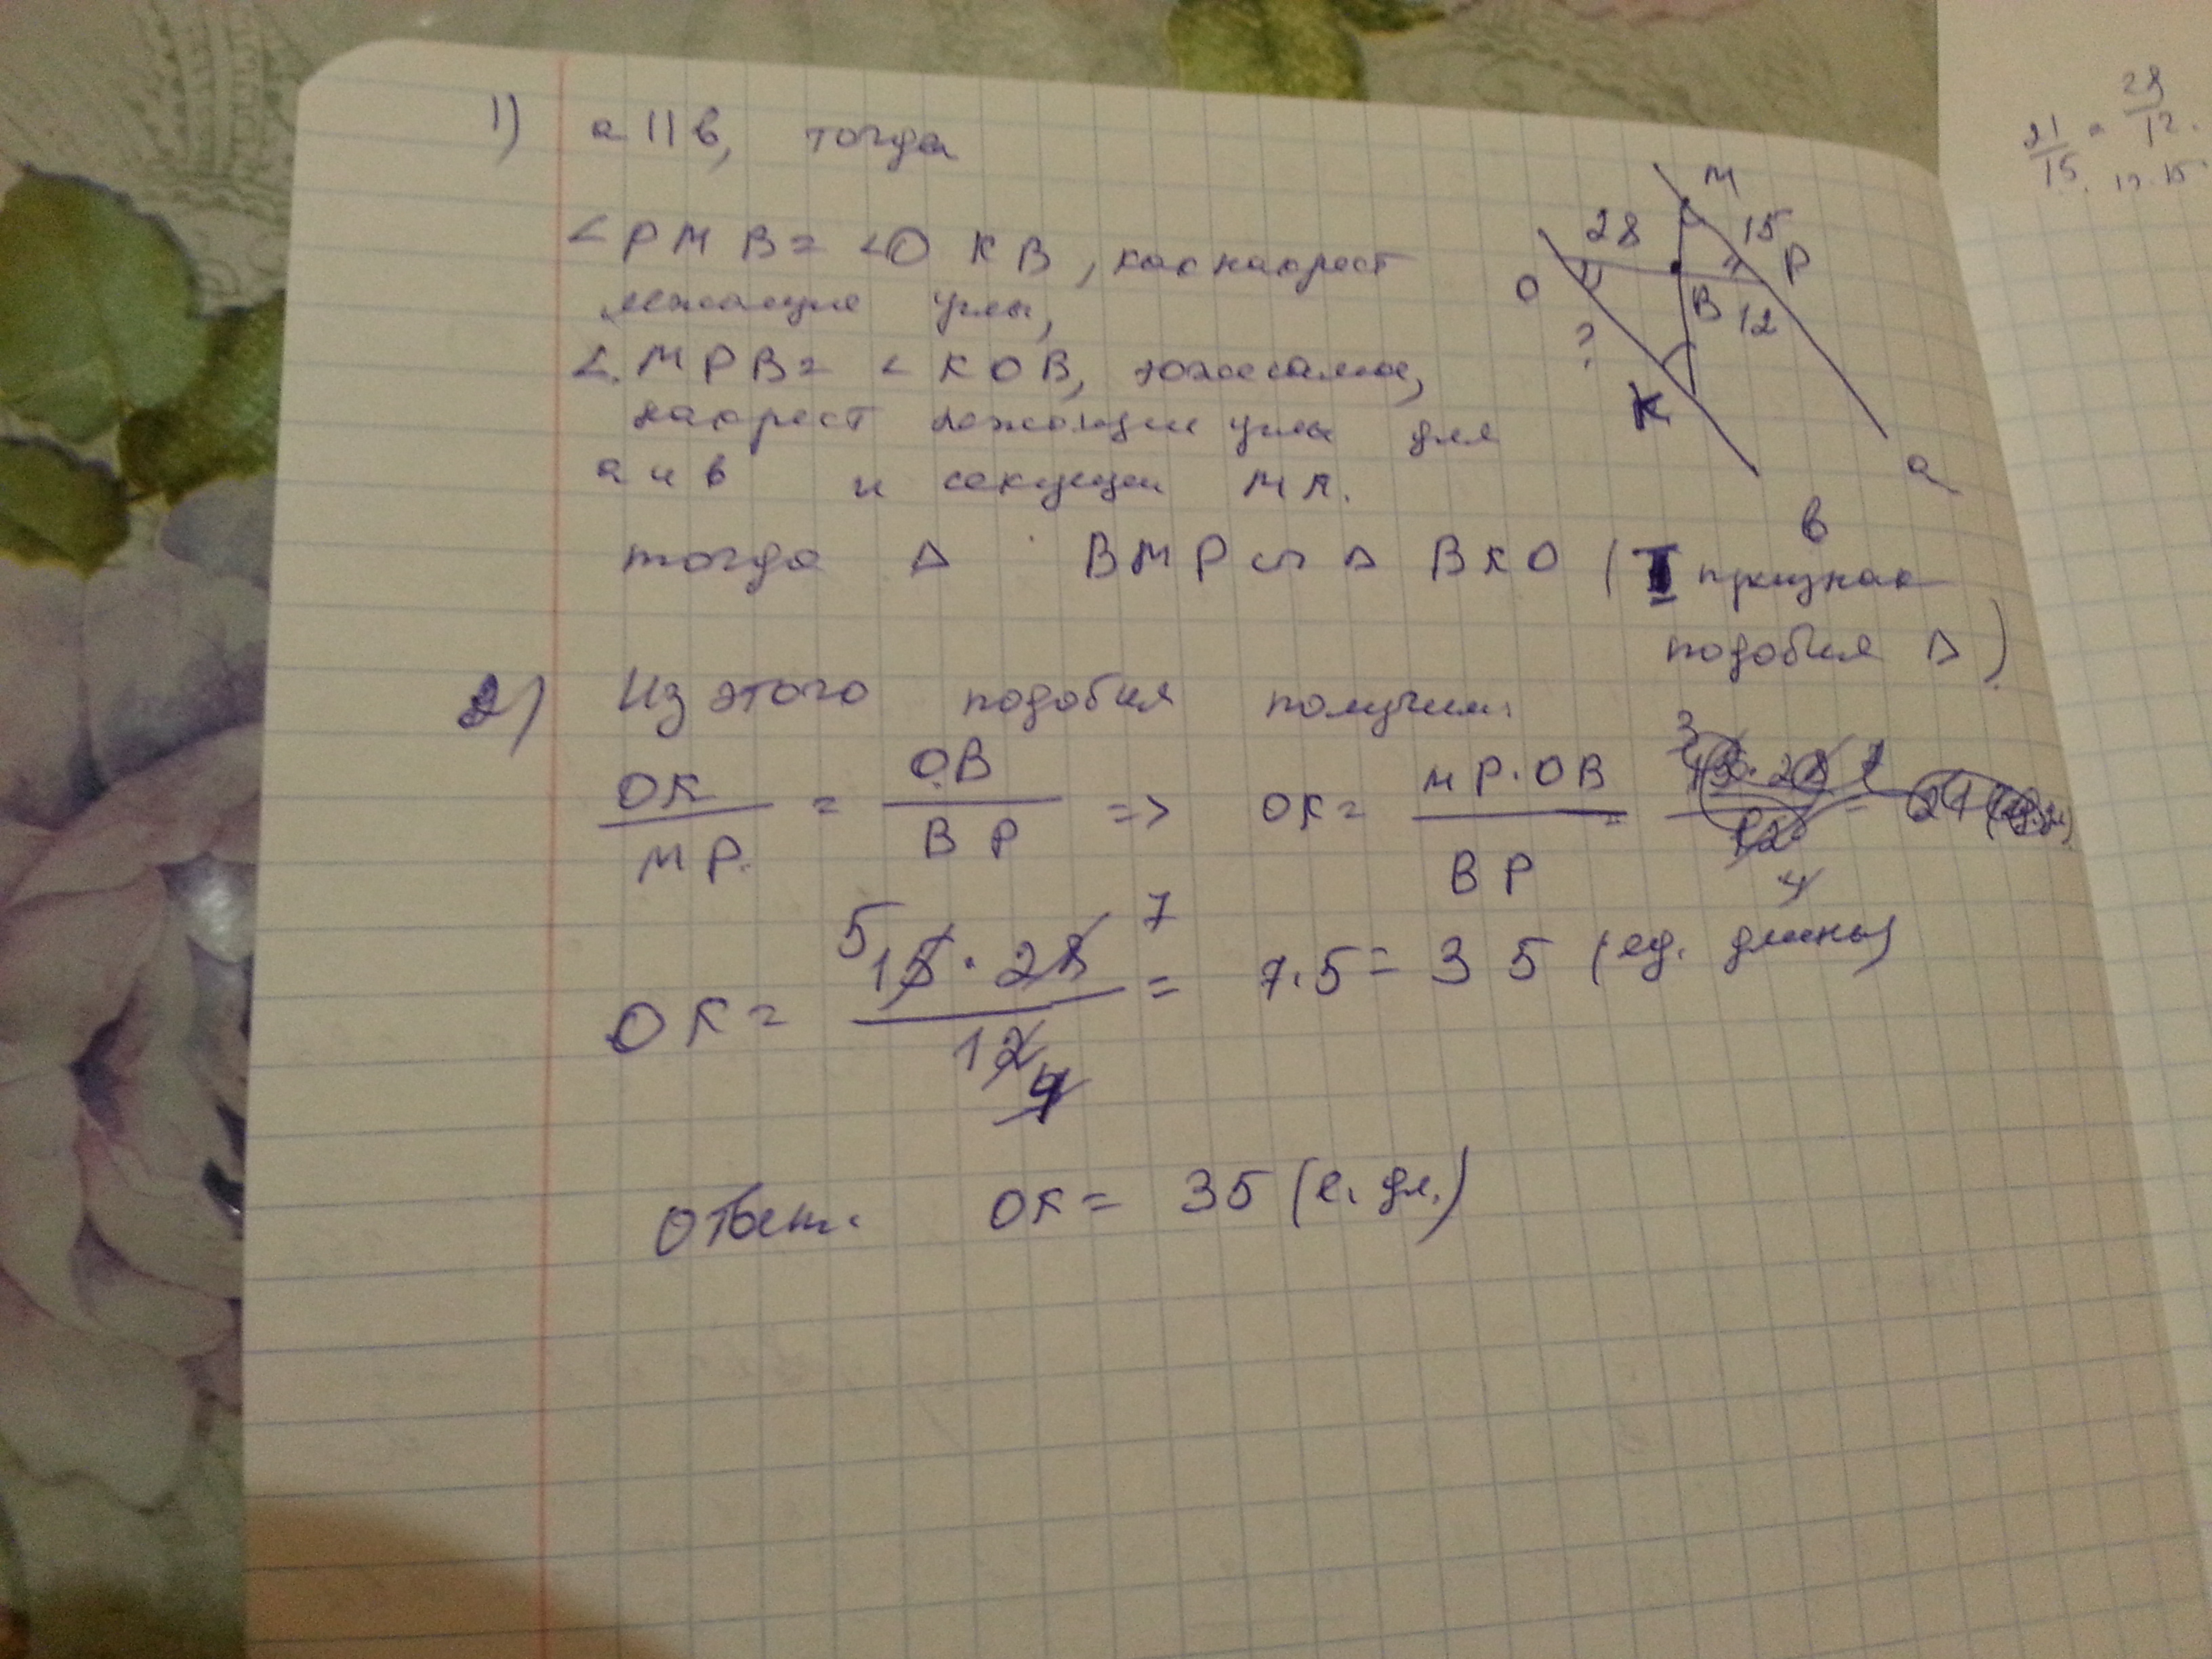 1) a || b, тогда
∠ PMB = ∠OKB, как накрест
лежащие углы,
∠. MPB = ∠ KOB, тоже самое,
накрест лежащие углы для
a и b и секущей МК.
тогда Δ BMP ∽ Δ BKO ( I признак
подобия Δ )
2) Из этого подобия получим:
OK / MP = OB / BP => OK = MP · OB / BP =
OK = 15 · 28 / 12 = 7 · 5 = 35 (ед. длины)
5 7 4
Ответ. OK = 35 (е. дл.)
M
28 15
O P
B 12
?
K
a
b
21 / 15 = 28 / 12.